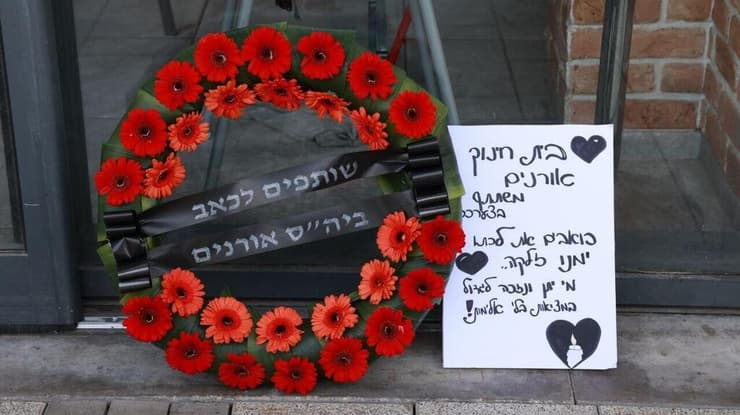 שותפים לכאב
ביה״ס אורנים
בית חינוך
אורנים
משתתף
בצערכם
כואבים את לכתו
ימנו זלקה..
מי יתן ונזכה לגדול
במציאות בלי אלימות!